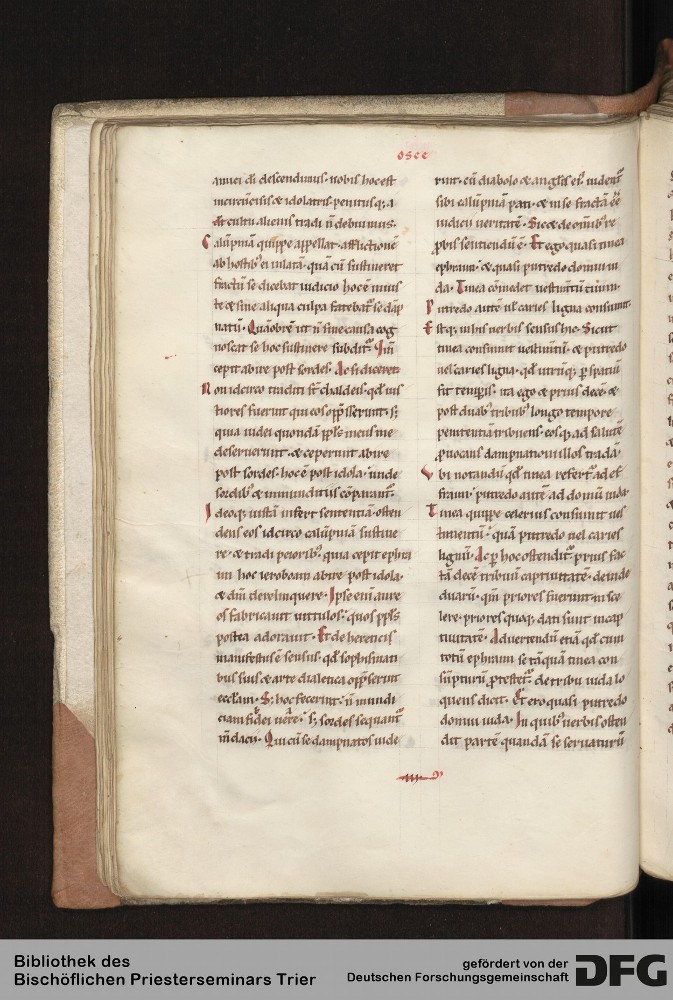 osee
amici di descendimus. nobis hoc est
incircūcisis & idolatris penitusq; a
dei cultu alienis tradi n̄ debuimus.
Calūpniā quippe appellat afflictionē
ab hostib; ei illatā. quā cū sustineret
fractū se dicebat iudicio. hoc ē iuus
te & sine aliqua culpa fatebat̄ se dāp
natū. Quāobrē ut n̄ sine causa cog
noscat se hoc sustinere subdit̄. Qm̄
cepit abire post sordes. Ac si diceret
Non idcirco traditi st̄ chaldeis. qd ius
tiores fuerint qui eos opp̄sserunt. s;
quia iudei quondā pp̄ls meus me
deseruerunt. & ceperunt abire
post sordes. hoc ē post idola. unde
sordib; & inmunditiis cōparant̄.
Ideoq; iustā infert sententiā. osten
dens eos idcirco calūpniā sustine
re. & tradi peiorib;. quia cepit ephra
im hoc ieroboam abire post idola.
& dm̄ derelinquere. Ipse eni aure
os fabricauit uitulos. quos pp̄ls
postea adorauit. Et de hereticis
manifestus ē sensus. qd sophismati
bus suis & arte dialetica opp̄serint
eccl̄am. S; hoc fecerint. n̄ mundi
ciam fidei uere. s; sordes sequant̄
m̄dacii. Qui cū se dampnatos uide
rint. cū diabolo & anglis ei;. uident̄
sibi calūpniā pati. & in se fractā eē
iudicii ueritatē. Sic & de omib; re
probis sentiendū ē. Et ego quasi tinea
ephraim. & quasi putredo domui iu
da. Tinea comedet uestimtū
Putredo autē ul caries ligna consumit.
Estq; in his uerbis sensus hic. Sicut
tinea consumit uestimtū. & putredo
uel caries ligna. qd utrūq; p spatiū
fit temporis. ita ego & prius decē. &
post duab; tribub; longo tempore
penitentiā tribuens. eosq; ad salutē
puocans dampnationi illos tradā.
Vbi notandū qd tinea refert̄ ad ef
fraim. putredo autē ad domū iuda.
Tinea quippe celerius consumit ues
timentū. quā putredo uel caries
lignū. Ac p hoc ostendit̄ prius fac
tā decē tribuū captiuitatē. deinde
duarū. qm̄ priores fuerunt in sce
lere. priores quoq; dati sunt in cap
tiuitatē. Aduertendū etiā qd cum
totū ephraim se tāquā tinea con
sūpturū p̄testet̄. de tribu iuda lo
quens dicit. Et ero quasi putredo
domui iuda. In quib; uerbis osten
dit partē quandā se seruaturū